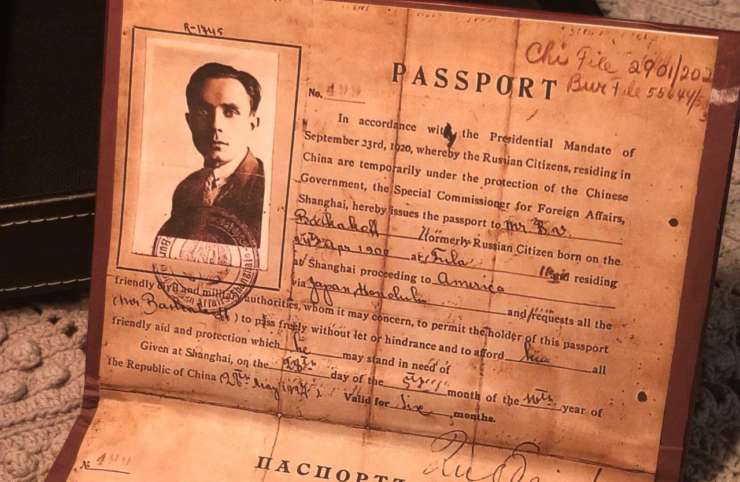 R-1745
Chi File 2901/202
Bur File 55644/5
PASSPORT
No. 499
In accordance with the Presidential Mandate of
September 23rd, 1920, whereby the Russian Citizens, residing in
China are temporarily under the protection of the Chinese
Government, the Special Commissioner for Foreign Affairs,
Shanghai, hereby issues the passport to Mr B.V.
formerly Russian Citizen born on the
Apr 1900 at Tula and residing
at Shanghai proceeding to America
via Japan, Honolulu and requests all the
friendly civil and military authorities, whom it may concern, to permit the holder of this passport
(Mr ) to pass freely without let or hindrance and to afford him all
friendly aid and protection which he may stand in need of
Given at Shanghai, on the day of the month of the 10th year of
The Republic of China Valid for Six months.
№ 499
ПАСПОРТ